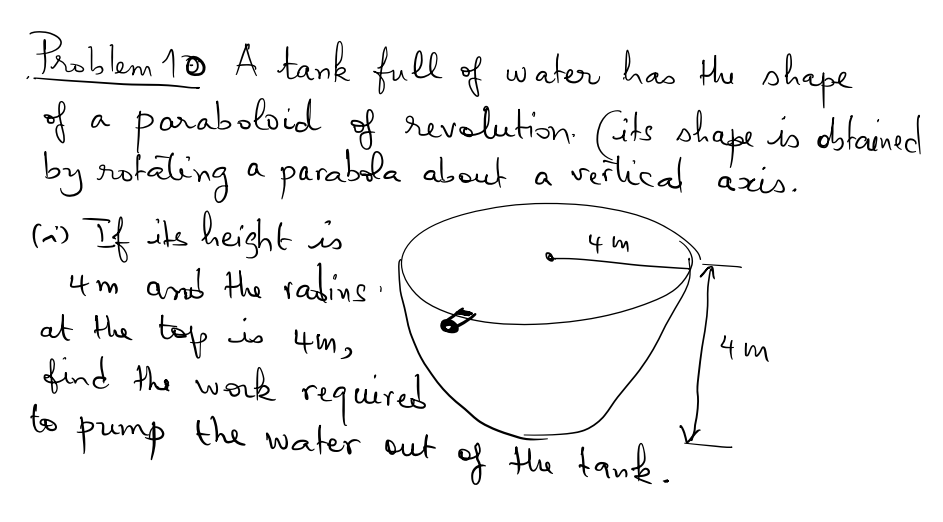 Problem 10 A tank full of water has the shape
of a paraboloid of revolution. (its shape is obtained
by rotating a parabola about a vertical axis.
(i) If its height is
4m and the radius
at the top is 4m,
find the work required
to pump the water out of the tank.
4 m
4 m